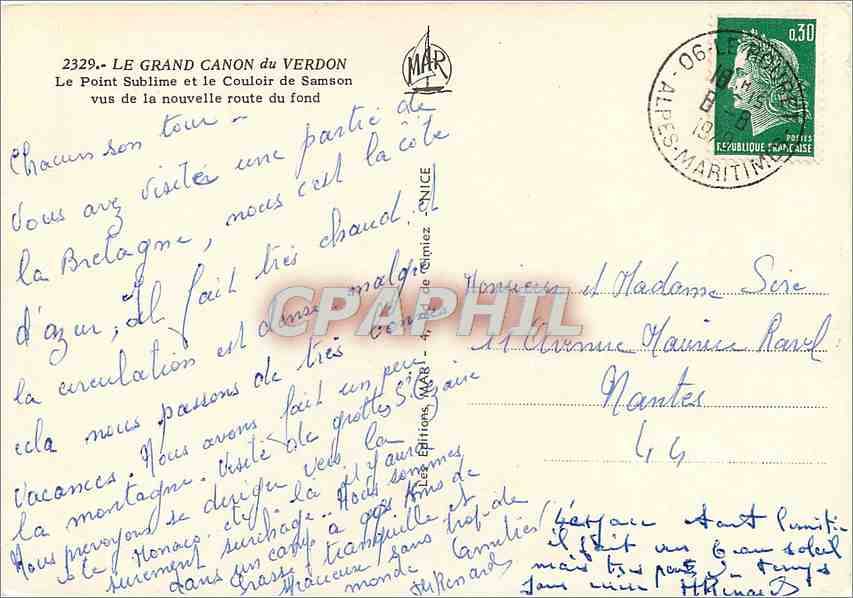 2329.- LE GRAND CANON du VERDON
Le Point Sublime et le Couloir de Samson
vus de la nouvelle route du fond
MAR
0,30
POSTES
REPUBLIQUE FRANÇAISE
06-LE
ALPES-MARITIMES
Les Editions MAR - 4, de Cimiez - NICE
CPAPHIL
Chacun son tour -
Vous avez visité une partie de
la Bretagne, nous c'est la côte
d'azur, il fait très chaud et
la circulation est dense malgré
cela nous passons de très bonnes
vacances. Nous avons fait un peu
la montagne. Visité de grottes St Cézaire
Nous prevoyons se diriger vers la
Monaco etc la il y aura
surement surchage.. Nous sommes
dans un camp à 4 Kms de
Grasse, tranquille et
spacieux sans trop de
monde Amitiés
Monsieur et Madame Sire
11 Avenue Maurice Ravel
Nantes
44
L'espace étant limité
il fait un beau soleil
mais très peu de temps